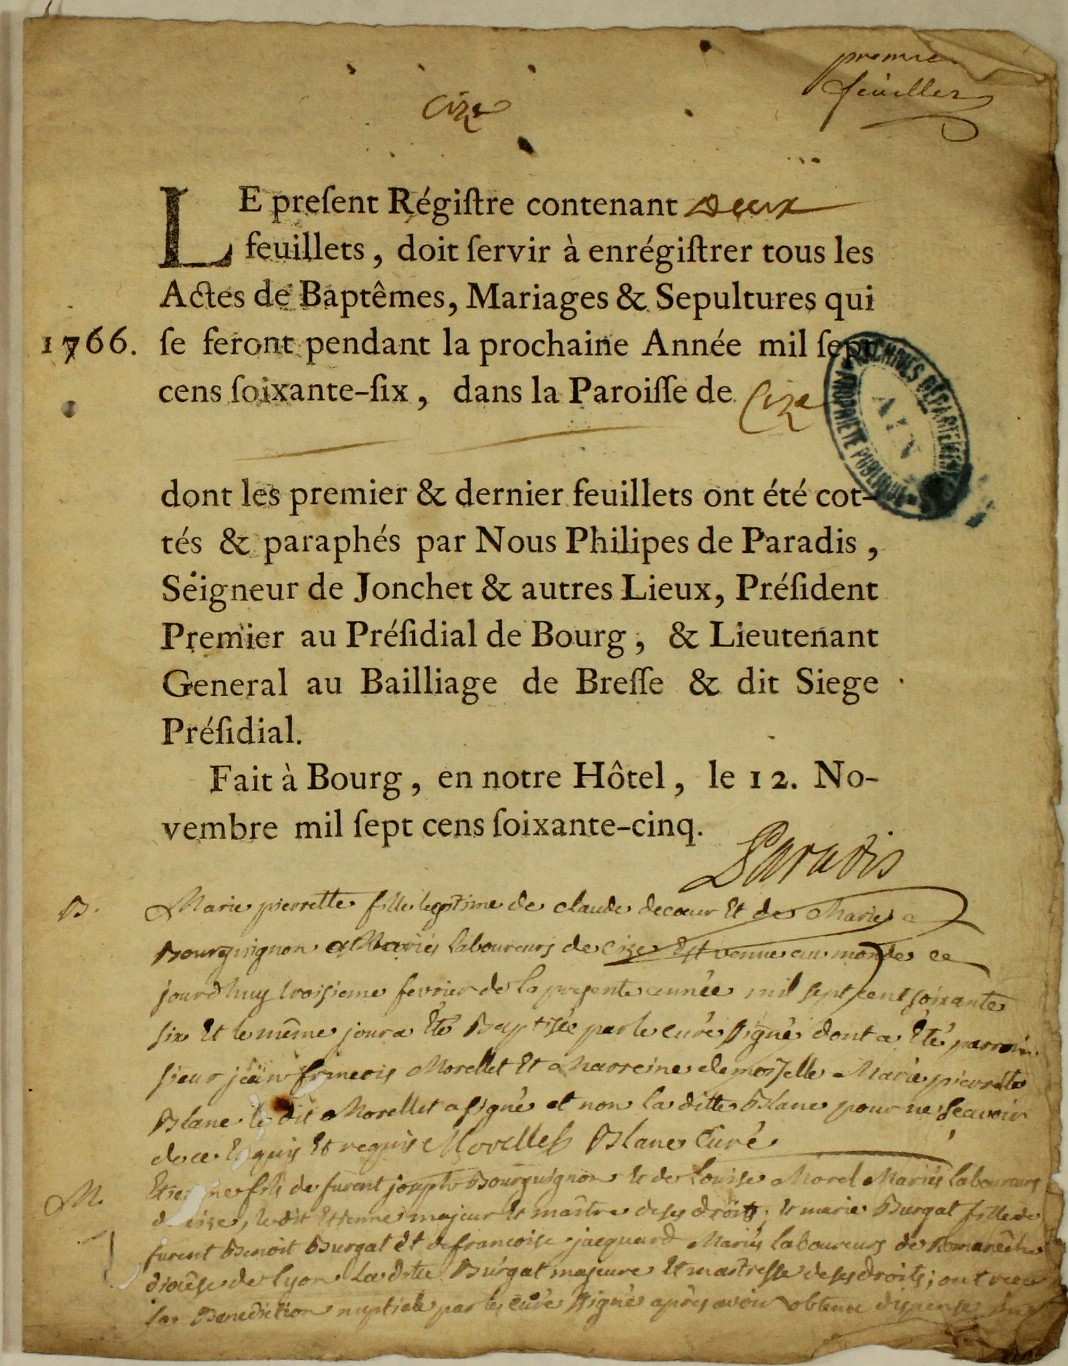 premier
feuillet
Cize
LE preſent Régiſtre contenant deux
feuillets, doit ſervir à enrégiſtrer tous les
Actes de Baptêmes, Mariages & Sepultures qui
1766. ſe feront pendant la prochaine Année mil ſept
cens ſoixante-ſix, dans la Paroiſſe de Cize
ARCHIVES DÉPARTEMENTALES
AIN
PROPRIÉTÉ PUBLIQUE
dont les premier & dernier feuillets ont été cot-
tés & paraphés par Nous Philipes de Paradis,
Seigneur de Jonchet & autres Lieux, Préſident
Premier au Préſidial de Bourg, & Lieutenant
General au Bailliage de Breſſe & dit Siege
Préſidial.
Fait à Bourg, en notre Hôtel, le 12. No-
vembre mil ſept cens ſoixante-cinq.
Paradis
B. Marie pierrette fille legitime de claude decœur Et de Marie
Bourguignon Mariés laboureurs de cize Est venue au monde ce
jourdhuy troisieme fevrier de la presente année mil sept cent soixante
six Et le même jour a Eté Baptisée par le curé signé dont a Eté parrain
sieur jean francois Morellet Et Marreine demoiselle Marie pierrette
Blanc le dit Morellet a signé et non la ditte Blanc pour ne scavoir
de ce Enquis Et requis Morellet Blanc Curé
M. Etienne fils de furent joseph Bourguignon & de Louise Morel Mariés laboureurs
de cize, le dit Etienne majeur Et maitre de ses droits, & marie Burgat fille de
furent Benoit Burgat Et de francoise jacquard Mariés laboureurs de Romanêche
diocèse de lyon La ditte Burgat majeure Et maitresse de ses droits; ont recu
la Benediction nuptiale par le curé signé après avoir obtenu dispense